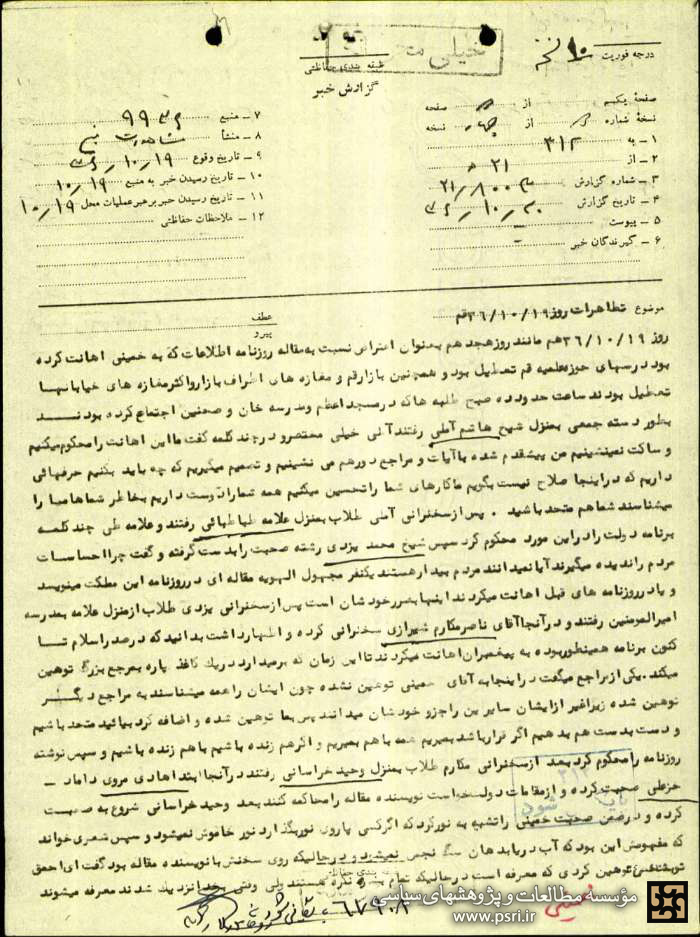 خیلی محرمانه
درجه فوریت
طبقه بندی حفاظتی
گزارش خبر
صفحه یکم از صفحه
نسخه شماره از نسخه
۱ ـ به ۳۱۲
۲ ـ از ۲۱ ه
۳ ـ شماره گزارش
۴ ـ تاریخ گزارش
۵ ـ پیوست
۶ ـ گیرندگان خبر
۷ ـ منبع
۸ ـ منشأ
۹ ـ تاریخ وقوع
۱۰ ـ تاریخ رسیدن خبر به منبع ۱۰/۱۹
۱۱ ـ تاریخ رسیدن خبر برهبر عملیات محل ۱۰/۱۹
۱۲ ـ ملاحظات حفاظتی
موضوع تظاهرات روز ۳۶/۱۰/۱۹ قم
عطف
پیرو
روز ۳۶/۱۰/۱۹ هم مانند روز هجدهم بعنوان اعتراض نسبت به مقاله روزنامه اطلاعات که به خمینی اهانت کرده
بود درسهای حوزه علمیه قم تعطیل بود و همچنین بازار قم و مغازه های اطراف بازار و اکثر مغازه های خیابانها
تعطیل بودند ساعت حدود ده صبح طلبه ها که در مسجد اعظم و مدرسه خان و صحنین اجتماع کرده بودند
بطور دسته جمعی بمنزل شیخ هاشم آملی رفتند آملی خیلی مختصر و در چند کلمه گفت ما این اهانت را محکوم میکنیم
و ساکت نمینشینیم من پیشقدم شده با آیات و مراجع دور هم می نشینیم و تصمیم میگیریم که چه باید بکنیم حرفهائی
داریم که در اینجا صلاح نیست بگویم ما کارهای شما را تحسین میکنیم همه شما را دوست داریم بخاطر شما ما را
میشناسند شما هم متحد باشید . پس از سخنرانی آملی طلاب بمنزل علامه طباطبائی رفتند و علامه طی چند کلمه
برنامه دولت را در این مورد محکوم کرد سپس شیخ محمد یزدی رشته صحبت را بدست گرفته و گفت چرا احساسات
مردم را ندیده میگیرند آیا نمیدانند مردم بیدار هستند یکنفر مجهول الهویه مقاله ای در روزنامه این مملکت مینویسد
و یا در روزنامه های قبل اهانت میکردند اینها بضرر خودشان است پس از سخنرانی یزدی طلاب از منزل علامه بمدرسه
امیرالمومنین رفتند و در آنجا آقای ناصر مکارم شیرازی سخنرانی کرده و اظهار داشت بدانید که در صدر اسلام تا
کنون برنامه همینطور بوده به پیغمبران اهانت میکردند تا این زمان که برمیدارد در یک کاغذ پاره بمرجع بزرگ توهین
میکند . یکی از مراجع میگفت در اینجا به آقای خمینی توهین نشده چون ایشان را همه میشناسند به مراجع دیگر
توهین شده زیرا غیر از ایشان سایرین را جزو خودشان میدانند پس بما توهین شده و اضافه کرد بیائید متحد باشیم
و دست بدست هم بدهیم اگر قرار باشد بمیریم همه با هم بمیریم و اگر هم زنده باشیم با هم زنده باشیم و سپس نوشته
روزنامه را محکوم کرد بعد از سخنرانی مکارم طلاب بمنزل وحید خراسانی رفتند در آنجا ابتدا هادی مروی داماد ـ
خزعلی صحبت کرده و از مقامات دولت خواست نویسنده مقاله را محاکمه کنند بعد وحید خراسانی شروع به صحبت
کرده و در ضمن صحبت خمینی را تشبیه به نور کرد که اگر کسی پا روی نور بگذارد نور خاموش نمیشود و سپس شعری خواند
که مفهومش این بود که آب دریا بدهان سگ نجس نمیشود و در حالیکه روی سخنش با نویسنده مقاله بود گفت ای احمق
هستند ولی وقتی
مؤسسه مطالعات و پژوهشهای سیاسی
www.psri.ir